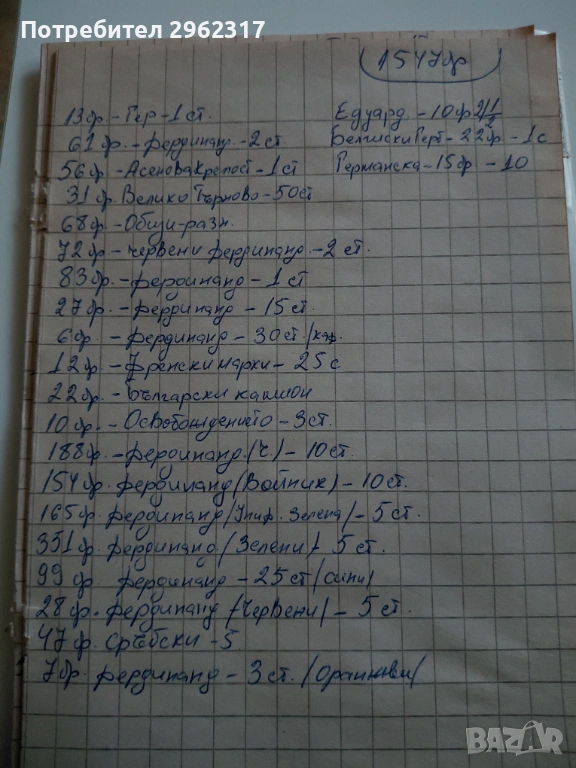 Потребител 2962317
1547бр
13бр - Гер - 1 ст.
61бр. - Фердинанд - 2 ст.
56бр - Асенова крепост - 1 ст
31бр. Велико Търново - 50 ст
68бр - Общи - разн.
72бр - червени Фердинанд - 2 ст.
83бр. - Фердинанд - 1 ст
27бр. - Фердинанд - 15 ст.
6бр - Фердинанд - 30 ст.
12бр - Френски марки - 25 с
22бр. - Български
10бр. - Освобождението - 3 ст.
188бр - Фердинанд (ч) - 10 ст.
154бр. Фердинанд (Войник) - 10 ст.
165бр. Фердинанд /Униф. Зелена/ - 5 ст.
351бр. Фердинанд /Зелени/ - 5 ст.
99 бр. Фердинанд - 25 ст /сини/
28бр. Фердинанд /Червени/ - 5 ст.
47 бр. Сръбски - 5
7бр. Фердинанд - 3 ст. /Оранжеви/
Едуард - 10бр
Белгийски Герб - 22бр - 1 с
Германска - 15бр - 10
BAZAR